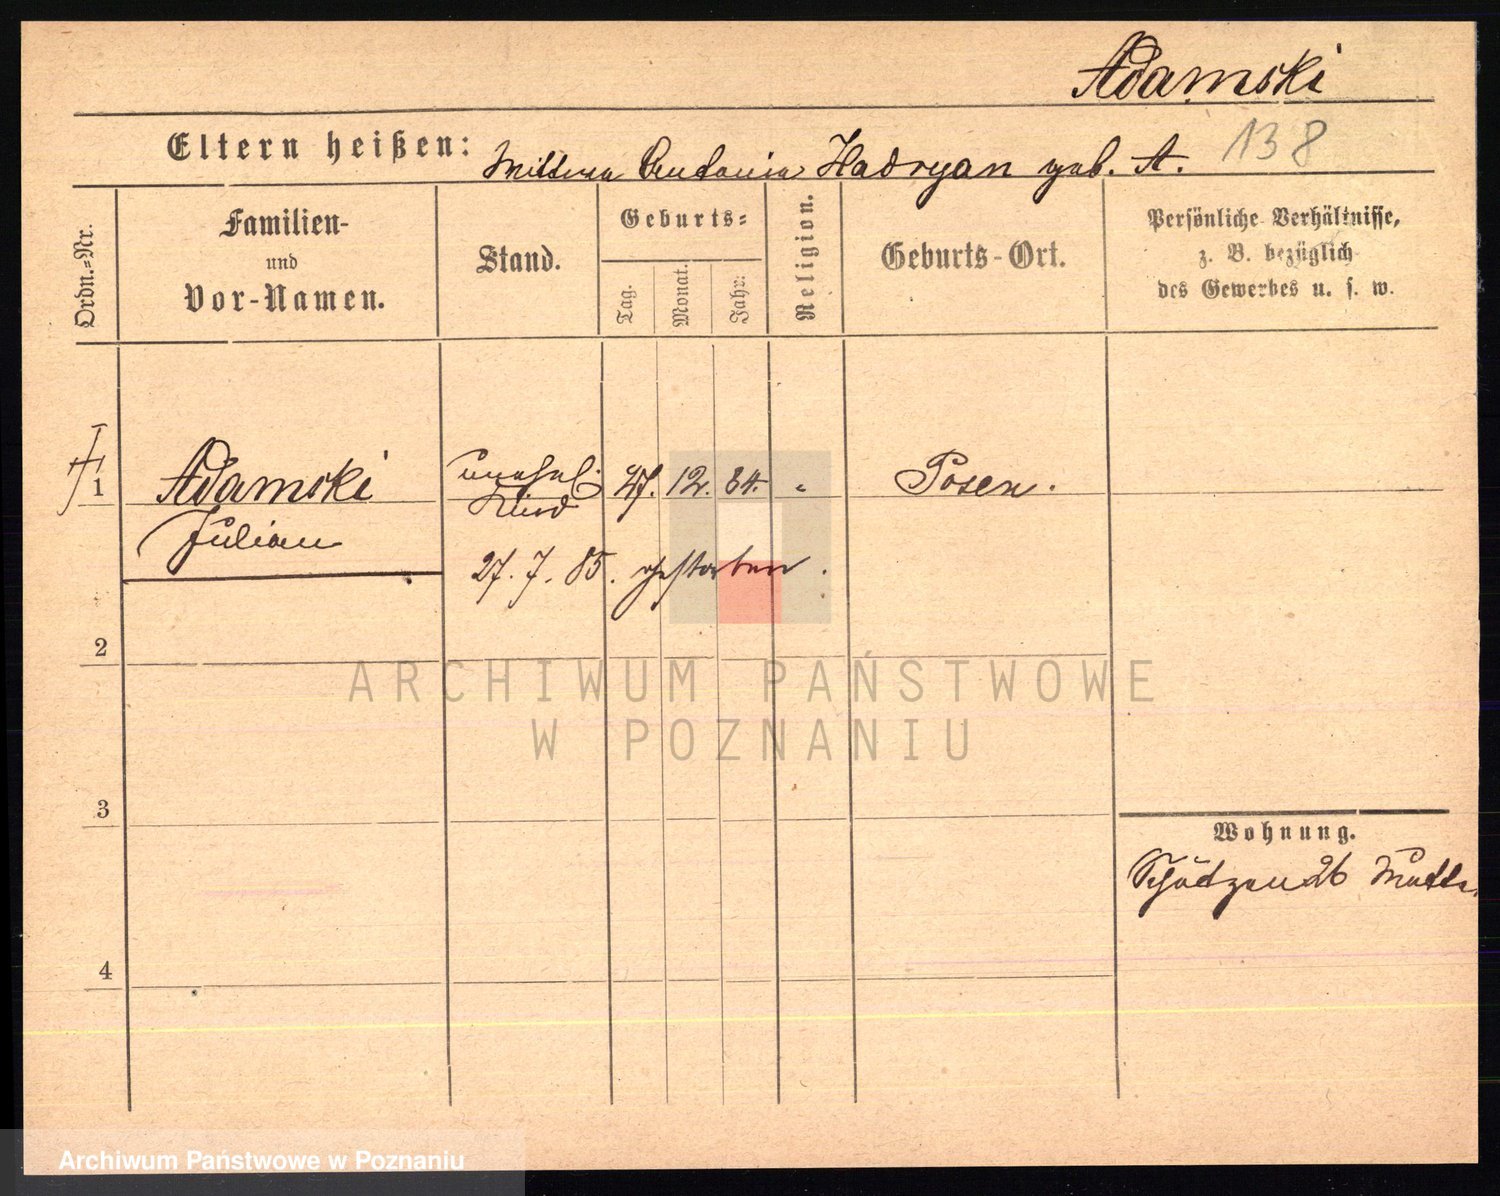 Adamski
138
Eltern heißen: Wittwe Antonia Hadryan geb. A.
Ordn.-Nr.
Familien-
und
Vor-Namen.
Stand.
Geburts-
Tag.
Monat.
Jahr.
Religion.
Geburts-Ort.
Persönliche Verhältnisse,
z. B. bezüglich
des Gewerbes u. s. w.
1
Adamski
Julian
unehel.
Kind
27. 12. 84.
Posen.
27. 7. 85. gestorben.
2
3
4
Wohnung.
Schützen 26 Mutter
ARCHIWUM PAŃSTWOWE
W POZNANIU
Archiwum Państwowe w Poznaniu